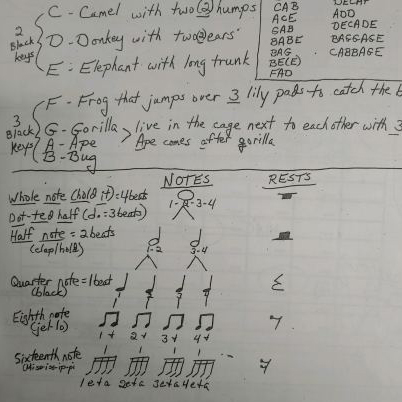 2 Black keys
C - Camel with two (2) humps
D - Donkey with two (2) ears
E - Elephant with long trunk
CAB
ACE
GAB
BABE
BAG
BE(E)
FAD
ADD
DECADE
BAGGAGE
CABBAGE
3 Black keys
F - Frog that jumps over 3 lily pads to catch the
G - Gorilla
A - Ape
B - Bug
live in the cage next to each other with 3
Ape comes after gorilla
NOTES
RESTS
Whole note (hold it) = 4 beats
1-2-3-4
Dot-ted half (d. = 3 beats)
Half note = 2 beats
(clap/hold)
1-2
3-4
Quarter note = 1 beat
(black)
1 2 3 4
Eighth note
(jet-lo)
1 + 2 + 3 + 4 +
Sixteenth note
(Mis-sis-sip-pi)
1 e + a 2 e + a 3 e + a 4 e + a